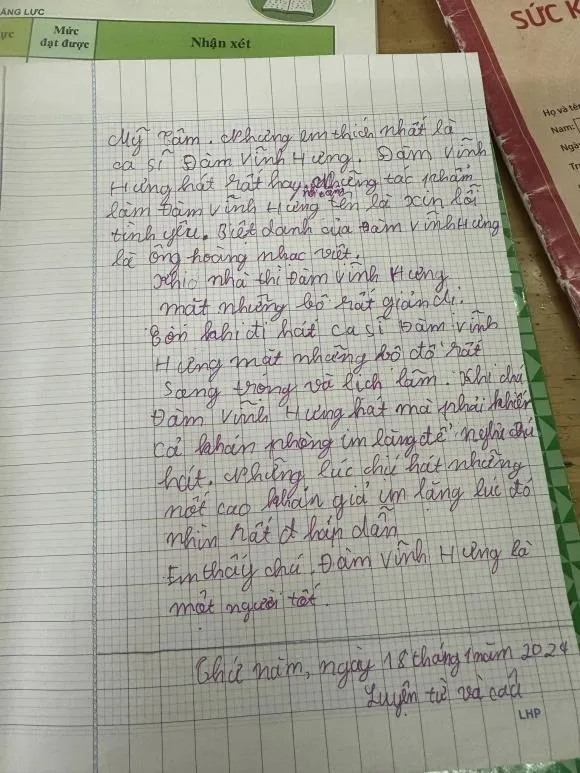 ĂNG LỰC
ực
Mức
đạt được
Nhận xét
SỨC K
Họ và tên
Nam:
Ngà
Tr
Mỹ Tâm. Nhưng em thích nhất là
ca sĩ Đàm Vĩnh Hưng. Đàm Vĩnh
Hưng hát rất hay, những tác phẩm
nổi tiếng
làm Đàm Vĩnh Hưng tên là xin lỗi
tình yêu. Biệt danh của Đàm Vĩnh Hưng
là ông hoàng nhạc việt.
nhà thì Đàm Vĩnh Hưng
mặt những bộ rất giản dị.
Còn khi đi hát ca sĩ Đàm Vĩnh
Hưng mặt những bộ đồ rất
sang trọng và lịch lãm. Khi chú
Đàm Vĩnh Hưng hát mà phải khiến
cả khán phòng im lặng để nghe chú
hát. Những lúc chú hát những
nốt cao khán giả im lặng lúc đó
nhìn rất đ hấp dẫn
Em thấy chú Đàm Vĩnh Hưng là
một người tốt.
Thứ năm, ngày 18 tháng 1 năm 2024
Luyện từ và câu
LHP